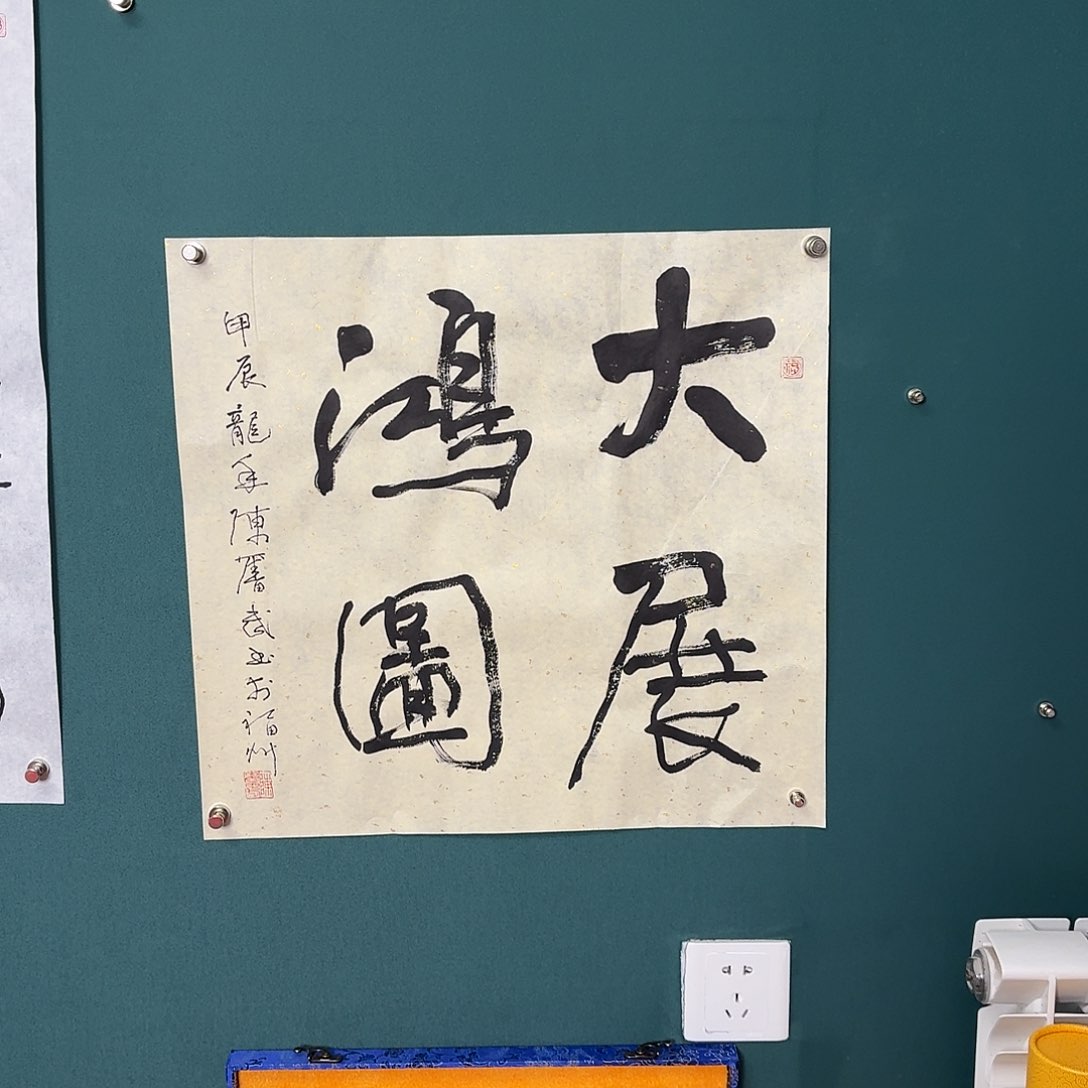 大展
鴻圖
甲辰龍年陳奮武書於福州